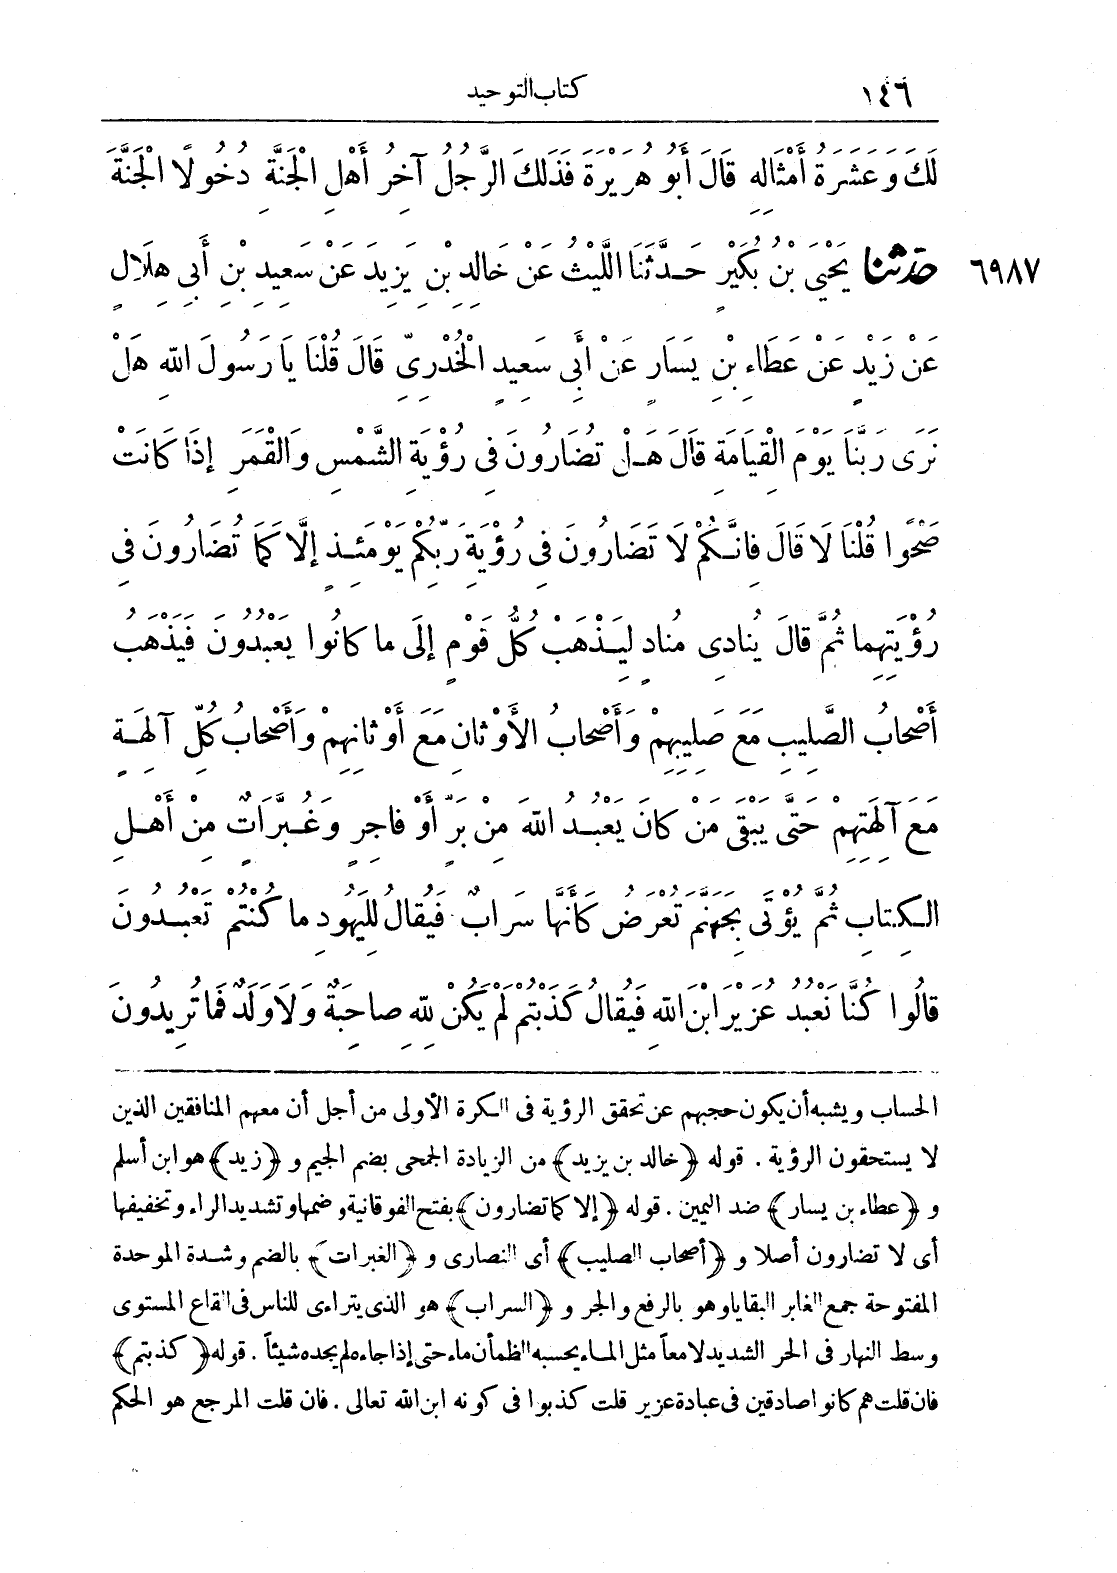 ١٤٦ كتاب التوحيد
لَكَ وَعَشَرَةُ أَمْثَالِهِ قَالَ أَبُو هُرَيْرَةَ فَذَلِكَ الرَّجُلُ آخِرُ أَهْلِ الْجَنَّةِ دُخُولًا الْجَنَّةَ
٦٩٨٧ حدثنا يَحْيَى بْنُ بُكَيْرٍ حَدَّثَنَا اللَّيْثُ عَنْ خَالِدِ بْنِ يَزِيدَ عَنْ سَعِيدِ بْنِ أَبِي هِلَالٍ
عَنْ زَيْدٍ عَنْ عَطَاءِ بْنِ يَسَارٍ عَنْ أَبِي سَعِيدٍ الْخُدْرِيِّ قَالَ قُلْنَا يَا رَسُولَ اللهِ هَلْ
نَرَى رَبَّنَا يَوْمَ الْقِيَامَةِ قَالَ هَلْ تُضَارُونَ فِي رُؤْيَةِ الشَّمْسِ وَالْقَمَرِ إِذَا كَانَتْ
صَحْوًا قُلْنَا لَا قَالَ فَإِنَّكُمْ لَا تُضَارُونَ فِي رُؤْيَةِ رَبِّكُمْ يَوْمَئِذٍ إِلَّا كَمَا تُضَارُونَ فِي
رُؤْيَتِهِمَا ثُمَّ قَالَ يُنَادِي مُنَادٍ لِيَذْهَبْ كُلُّ قَوْمٍ إِلَى مَا كَانُوا يَعْبُدُونَ فَيَذْهَبُ
أَصْحَابُ الصَّلِيبِ مَعَ صَلِيبِهِمْ وَأَصْحَابُ الْأَوْثَانِ مَعَ أَوْثَانِهِمْ وَأَصْحَابُ كُلِّ آلِهَةٍ
مَعَ آلِهَتِهِمْ حَتَّى يَبْقَى مَنْ كَانَ يَعْبُدُ اللهَ مِنْ بَرٍّ أَوْ فَاجِرٍ وَغُبَّرَاتٌ مِنْ أَهْلِ
الْكِتَابِ ثُمَّ يُؤْتَى بِجَهَنَّمَ تُعْرَضُ كَأَنَّهَا سَرَابٌ فَيُقَالُ لِلْيَهُودِ مَا كُنْتُمْ تَعْبُدُونَ
قَالُوا كُنَّا نَعْبُدُ عُزَيْرَ ابْنَ اللهِ فَيُقَالُ كَذَبْتُمْ لَمْ يَكُنْ لِلهِ صَاحِبَةٌ وَلَا وَلَدٌ فَمَا تُرِيدُونَ
الحساب ويشبه أن يكون حجبهم عن تحقق الرؤية فى الكرة الأولى من أجل أن معهم المنافقين الذين
لا يستحقون الرؤية . قوله ﴿خالد بن يزيد﴾ من الزيادة الجمحى بضم الجيم و ﴿زيد﴾ هو ابن أسلم
و ﴿عطاء بن يسار﴾ ضد اليمين . قوله ﴿إلا كما تضارون﴾ بفتح الفوقانية وضمها وتشديد الراء وتخفيفها
أى لا تضارون أصلا و ﴿أصحاب الصليب﴾ أى النصارى و ﴿الغبرات﴾ بالضم وشدة الموحدة
المفتوحة جمع الغابر البقايا وهو بالرفع والجر و ﴿السراب﴾ هو الذى يتراءى للناس فى القاع المستوى
وسط النهار فى الحر الشديد لامعاً مثل الماء يحسبه الظمآن ماء حتى إذا جاءه لم يجده شيئاً . قوله ﴿كذبتم﴾
فان قلت هم كانوا صادقين فى عبادة عزير قلت كذبوا فى كونه ابن الله تعالى . فان قلت المرجع هو الحكم